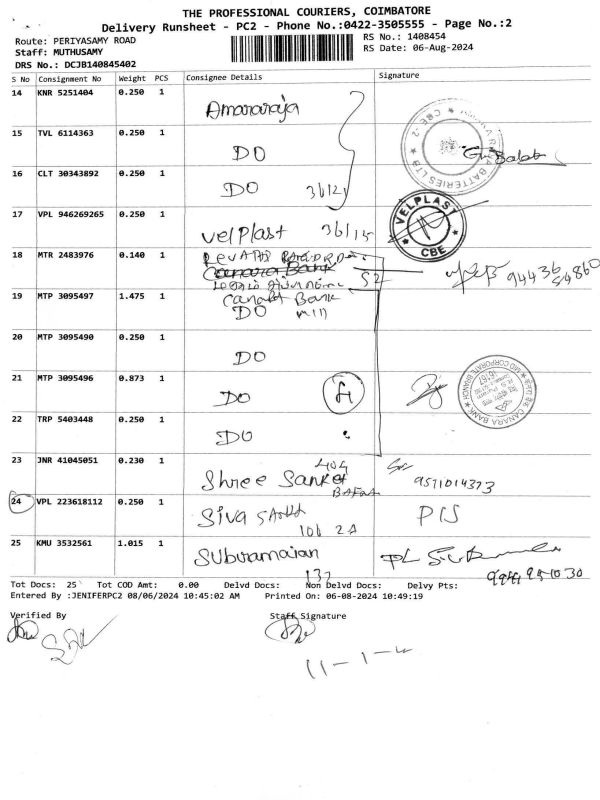 THE PROFESSIONAL COURIERS, COIMBATORE
Delivery Runsheet - PC2 - Phone No.:0422-3505555 - Page No.:2
Route: PERIYASAMY ROAD
Staff: MUTHUSAMY
DRS No.: DCJB140845402
RS No.: 1408454
RS Date: 06-Aug-2024
S No Consignment No Weight PCS Consignee Details Signature
14 KNR 5251404 0.250 1 Amararaja
15 TVL 6114363 0.250 1 DO
16 CLT 30343892 0.250 1 DO
17 VPL 946269265 0.250 1 velplast 36/15
VELPLAST
CBE
18 MTR 2483976 0.140 1 Canara Bank 52 94436
54860
19 MTP 3095497 1.475 1 Canara Bank
DO
20 MTP 3095490 0.250 1 DO
21 MTP 3095496 0.873 1 DO
CANARA BANK
MID CORPORATE BRANCH
22 TRP 5403448 0.250 1 DO
23 JNR 41045051 0.230 1 Shree Sanket 404 9571014373
24 VPL 223618112 0.250 1 Siva
25 KMU 3532561 1.015 1 Subramaian
132
Tot Docs: 25 Tot COD Amt: 0.00 Delvd Docs: Non Delvd Docs: Delvy Pts:
Entered By :JENIFERPC2 08/06/2024 10:45:02 AM Printed On: 06-08-2024 10:49:19
Verified By Staff Signature